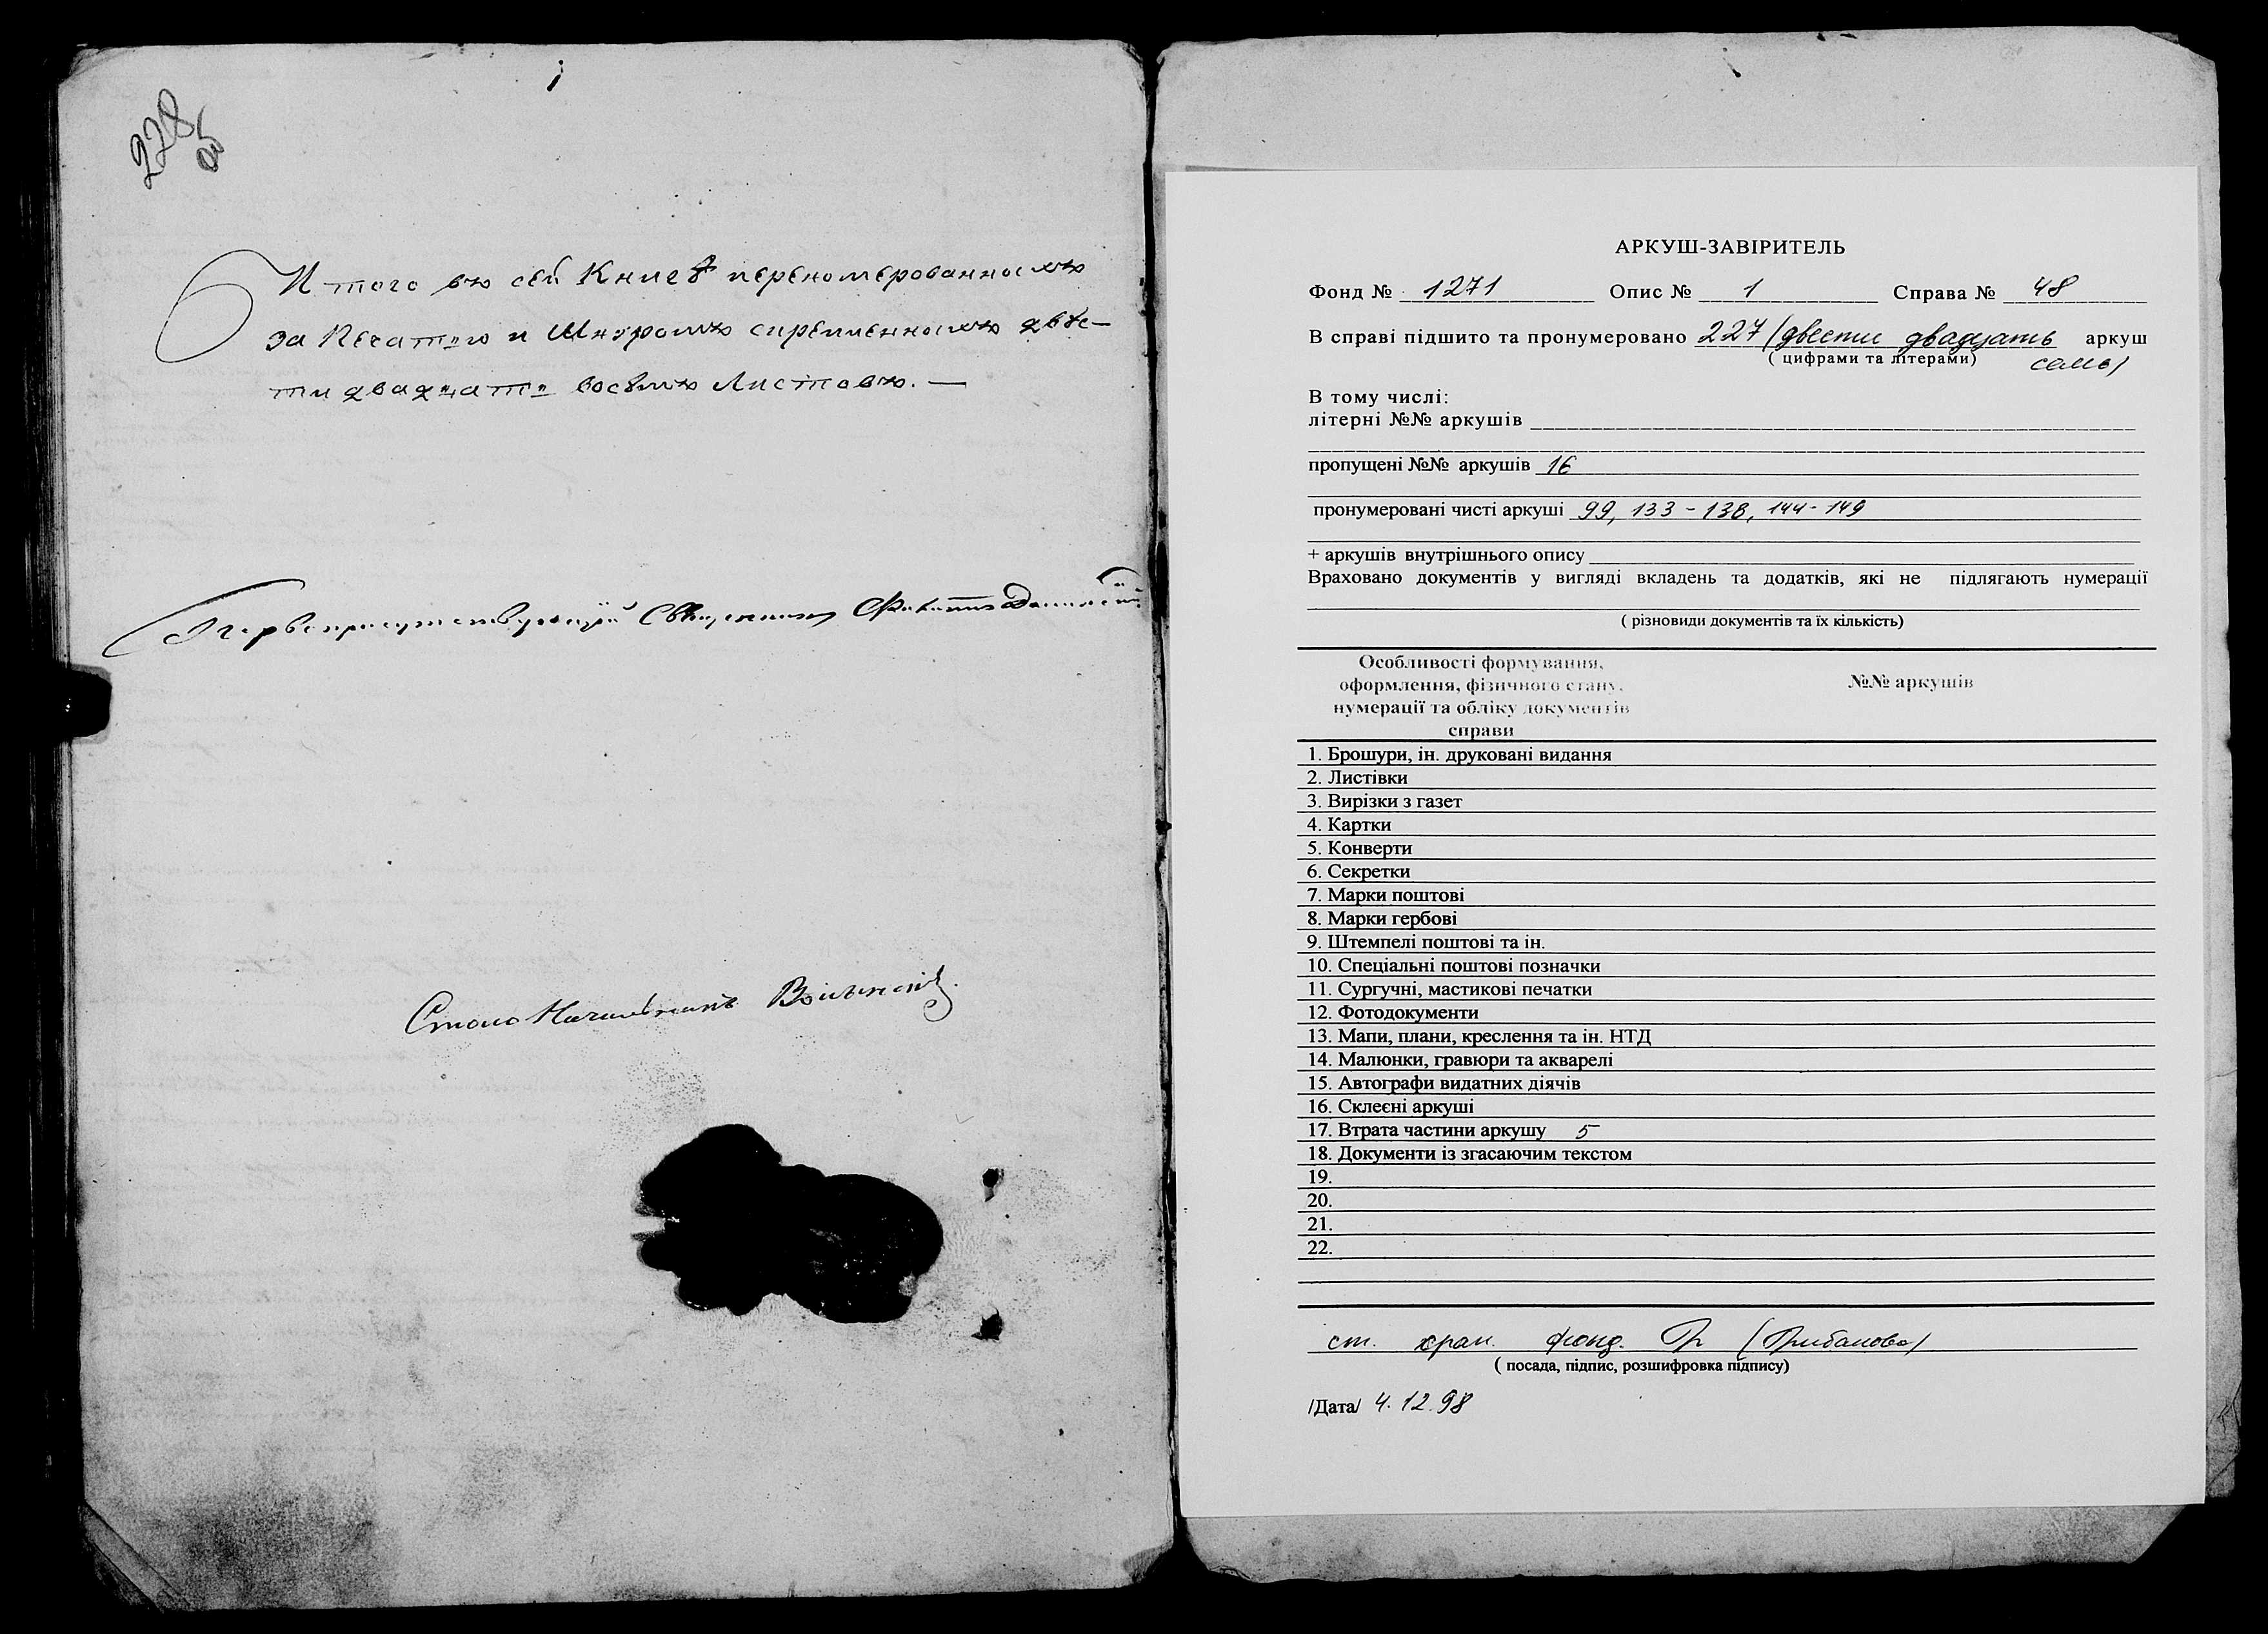 228
об
Итого въ сей Книгѣ переномерованныхъ
за Печатью и Шнуромъ скрепленныхъ двѣс-
ти двадцать восемь Листовъ. —
Первоприсутствующій Священникъ
Столоначальникъ Волынскій.
АРКУШ-ЗАВІРИТЕЛЬ
Фонд № 1271 Опис № 1 Справа № 48
В справі підшито та пронумеровано 227 (двести двадцать аркуш
( цифрами та літерами) семь)
В тому числі:
літерні №№ аркушів
пропущені №№ аркушів 16
пронумеровані чисті аркуші 99, 133 - 138, 144 - 149
+ аркушів внутрішнього опису
Враховано документів у вигляді вкладень та додатків, які не підлягають нумерації
( різновиди документів та їх кількість)
Особливості формування, №№ аркушів
оформлення, фізичного стану,
нумерації та обліку документів
справи
1. Брошури, ін. друковані видання
2. Листівки
3. Вирізки з газет
4. Картки
5. Конверти
6. Секретки
7. Марки поштові
8. Марки гербові
9. Штемпелі поштові та ін.
10. Спеціальні поштові позначки
11. Сургучні, мастикові печатки
12. Фотодокументи
13. Мапи, плани, креслення та ін. НТД
14. Малюнки, гравюри та акварелі
15. Автографи видатних діячів
16. Склеєні аркуші
17. Втрата частини аркушу 5
18. Документи із згасаючим текстом
19.
20.
21.
22.
ст. хран. фонд.
( посада, підпис, розшифровка підпису)
/Дата/ 4.12.98